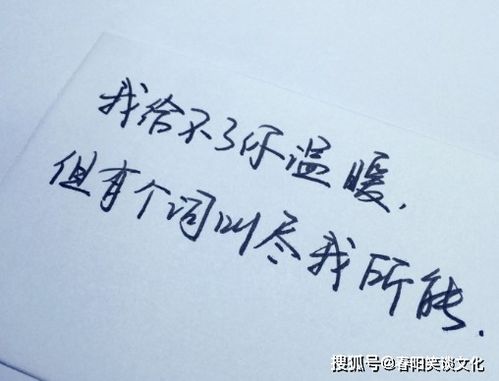 我给不了你温暖,
但有个词叫尽我所能.
搜狐号@春阳笑谈文化